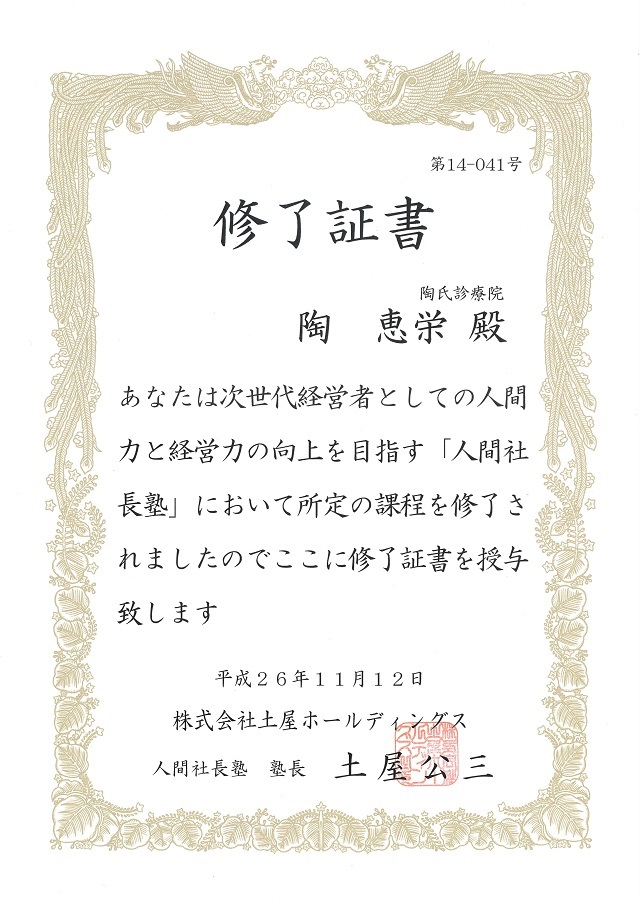 第14-041号
修了証書
陶氏診療院
陶 恵栄 殿
あなたは次世代経営者としての人間
力と経営力の向上を目指す「人間社
長塾」において所定の課程を修了さ
れましたのでここに修了証書を授与
致します
平成２６年１１月１２日
株式会社土屋ホールディングス
人間社長塾 塾長 土屋公三